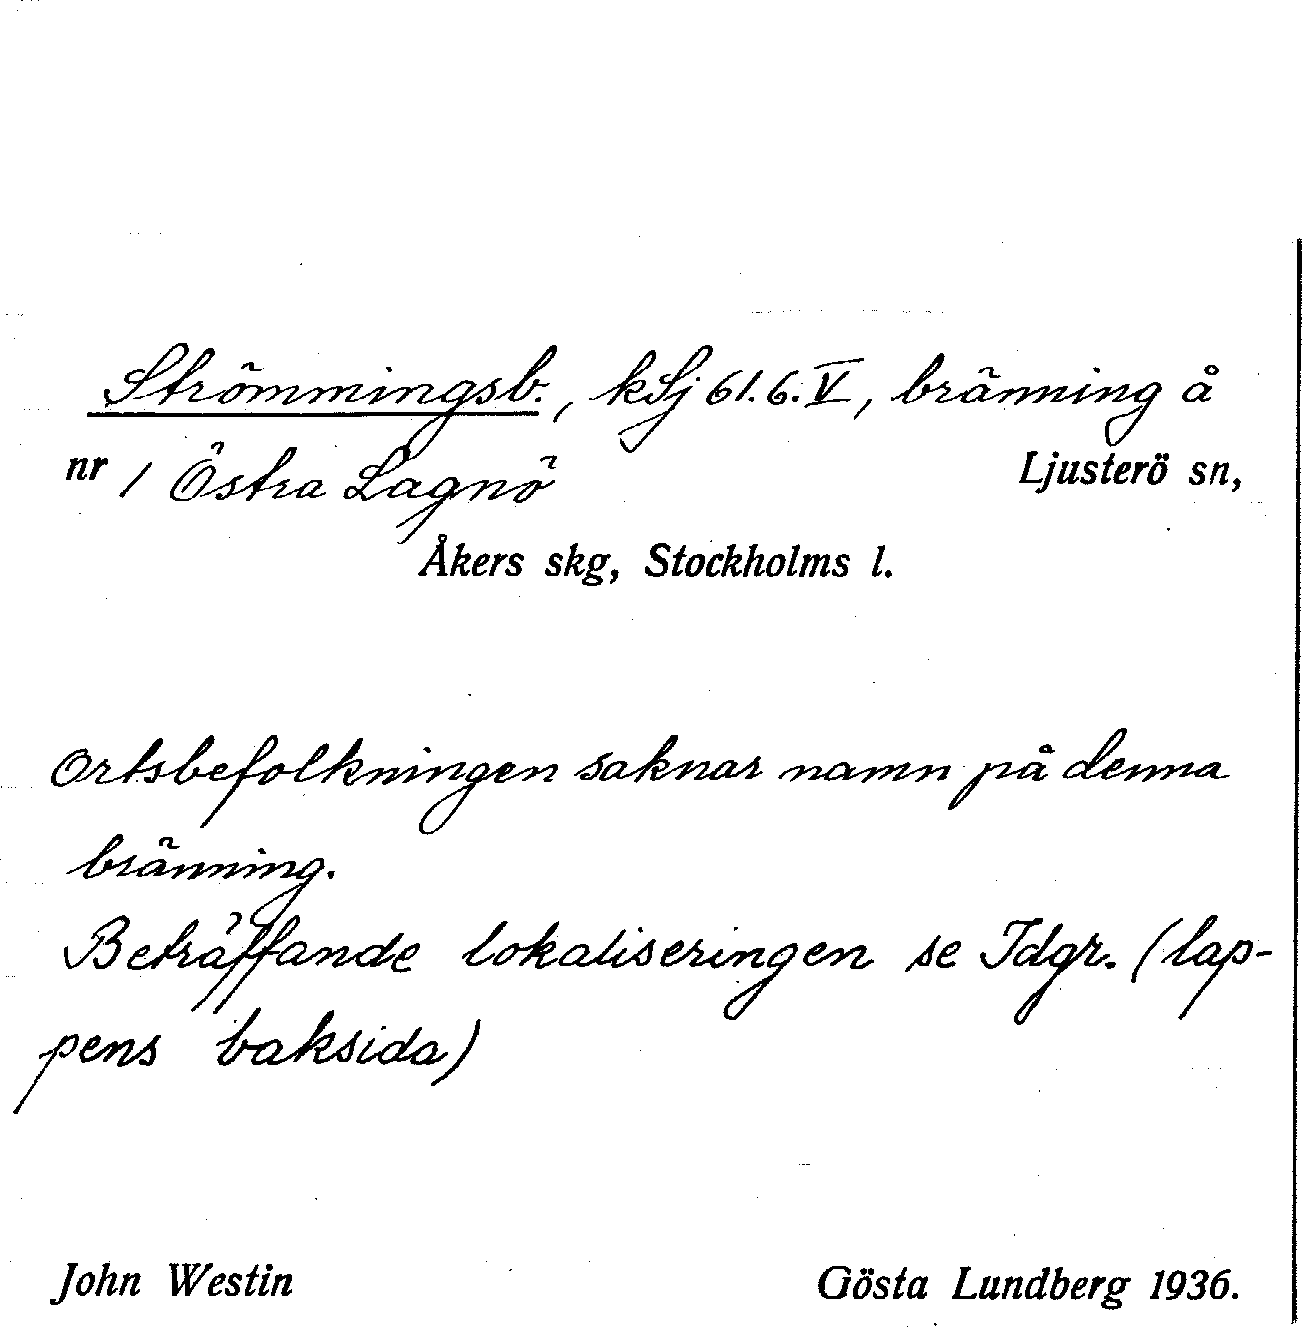 Strömmingsb., kSj 61.6.V, bränning å
nr 1 Östra Lagnö Ljusterö sn,
Åkers skg, Stockholms l.
Ortsbefolkningen saknar namn på denna
bränning.
Beträffande lokaliseringen se Idgr. (lap-
pens baksida)
John Westin Gösta Lundberg 1936.